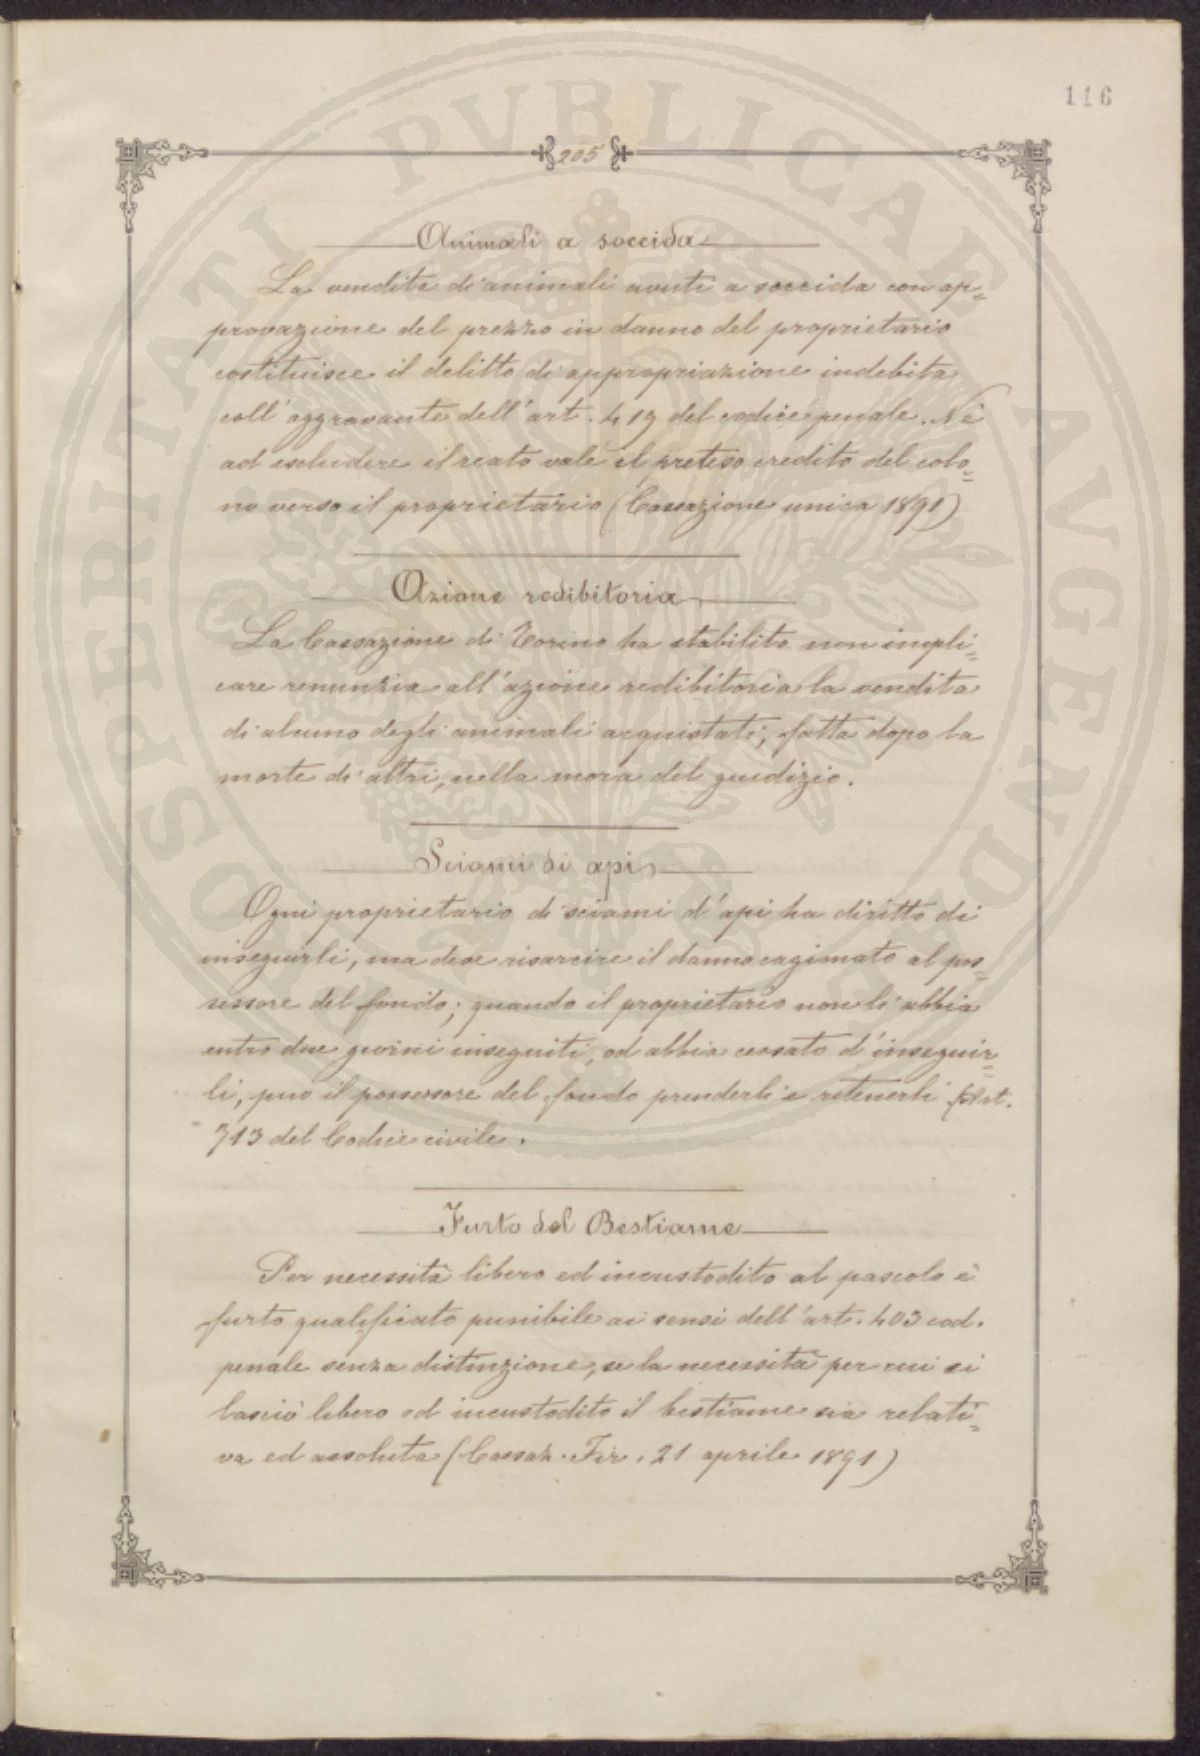 116
205
Animali a soccida
La vendita di animali avuti a soccida con ap=
provazione del prezzo in danno del proprietario
costituisce il delitto di appropriazione indebita
coll'aggravante dell'art. 419 del codice penale. Nè
ad escludere il reato vale il preteso credito del colo=
no verso il proprietario (Cassazione unica 1891)
Azione redibitoria
La Cassazione di Torino ha stabilito non impli=
care renunzia all'azione redibitoria la vendita
di alcuno degli animali acquistati, fatta dopo la
morte di altri, nella mora del giudizio.
Sciami di api
Ogni proprietario di sciami d'api ha diritto di
inseguirli, ma deve risarcire il danno cagionato al pos=
sessore del fondo; quando il proprietario non li abbia
entro due giorni inseguiti, od abbia cessato d'inseguir=
li, puo il possessore del fondo prenderli e ritenerli (Art.
713 del Codice civile.
Furto del Bestiame
Per necessità libero ed incustodito al pascolo è
furto qualificato punibile ai sensi dell'art. 403 cod.
penale senza distinzione, se la necessità per cui si
lasciò libero ed incustodito il bestiame sia relati=
va ed assoluta (Cassaz. Fir. 21 aprile 1891)
PROSPERITATI PVBLICAE AVGENDAE